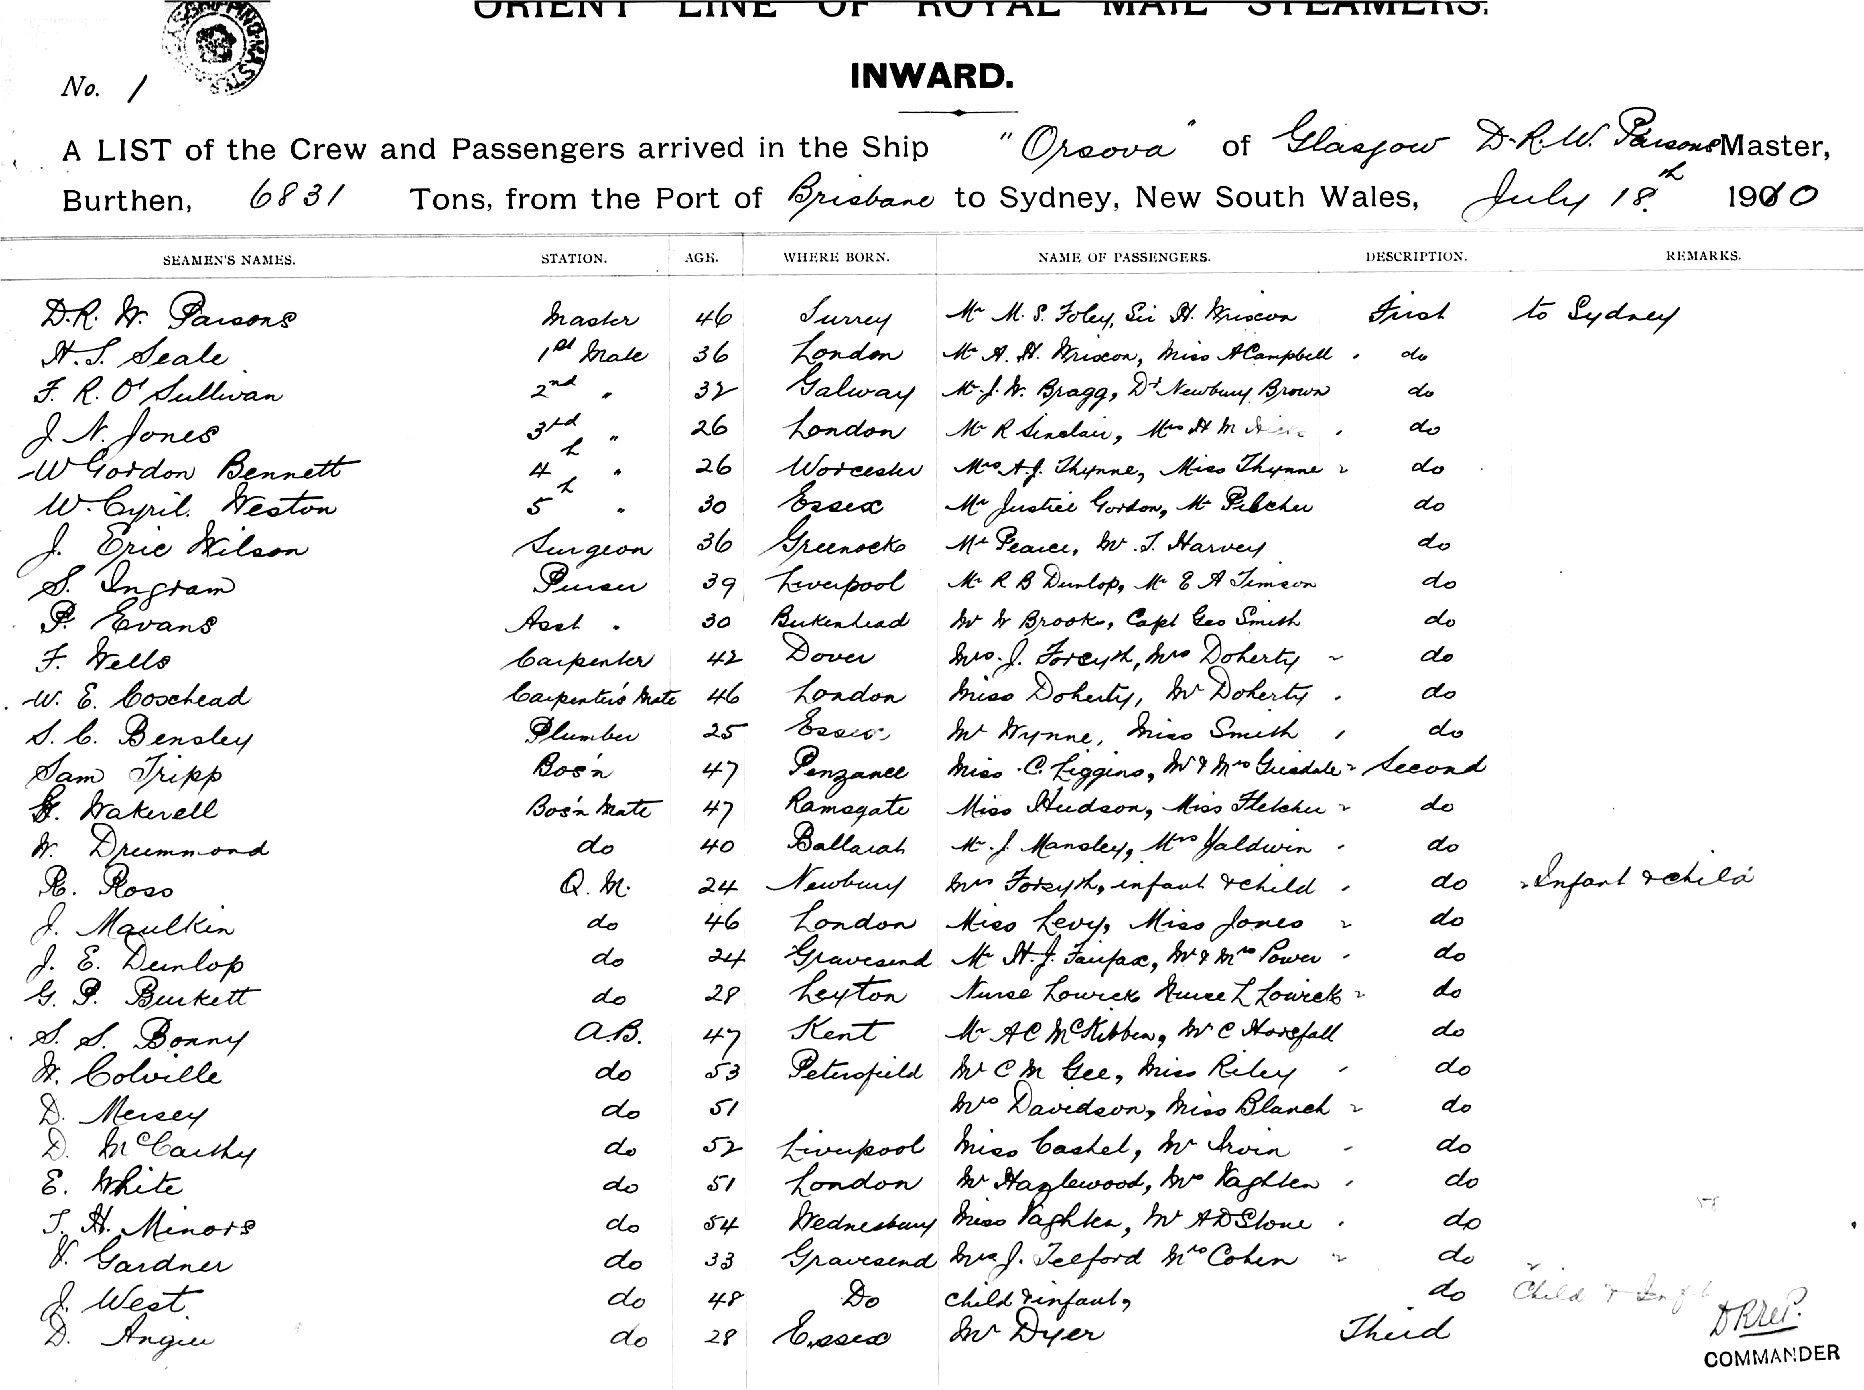 ORIENT LINE OF ROYAL MAIL STEAMERS.
No. 1
INWARD.
A LIST of the Crew and Passengers arrived in the Ship "Orsova" of Glasgow D.R.W. Parsons Master,
Burthen, 6831 Tons, from the Port of Brisbane to Sydney, New South Wales, July 18th 1910
SEAMEN'S NAMES. STATION. AGE. WHERE BORN. NAME OF PASSENGERS. DESCRIPTION. REMARKS.
D.R. W. Parsons Master 46 Surrey Mr M. S. Foley, Sir H. Wrixon First to Sydney
H. S. Seale 1st Mate 36 London Mr A. H. Wrixon, Miss A Campbell do
F. R. O'Sullivan 2nd " 32 Galway Mr J. W. Bragg, Dr Newbury Brown do
J. N. Jones 3rd " 26 London Mr R Sinclair, Mrs H M do
W Gordon Bennett 4th " 26 Worcester Mrs A.J. Thynne, Miss Thynne do
W. Cyril. Weston 5th " 30 Essex Mr Justice Gordon, Mr Pilcher do
J. Eric Wilson Surgeon 36 Greenock Mr Pearce, Mr. T. Harvey do
S. Ingram Purser 39 Liverpool Mr R B Dunlop, Mr E A Timson do
P. Evans Asst " 30 Birkenhead Mr W Brooks, Capt Geo Smith do
F. Wells Carpenter 42 Dover Mrs. J. Forsyth, Mrs Doherty do
W. E. Coxhead Carpenter's Mate 46 London Miss Doherty, Mr Doherty do
S. C. Bensley Plumber 25 Essex Mr Wynne, Miss Smith do
Sam Tripp Bos'n 47 Penzance Miss C. Liggins, Mr & Mrs Grisdale Second
G. Wakerell Bos'n Mate 47 Ramsgate Miss Hudson, Miss Fletcher do
W. Drummond do 40 Ballarat Mr. J. Mansley, Mrs Yaldwin do
R. Ross Q. M. 24 Newbury Mrs Forsyth, infant & child do Infant & child
J. Maulkin do 46 London Miss Levy, Miss Jones do
J. E. Dunlop do 24 Gravesend Mr H. J. Fairfax, Mr & Mrs Power do
G. P. Burkett do 28 Leyton Nurse Lowick Nurse L Lowick do
S. S. Bonny A.B. 47 Kent Mr A C McKibben, Mr C Horsfall do
W. Colville do 53 Petersfield Mr C M Gee, Miss Riley do
D. Mersey do 51 Mrs Davidson, Miss Blanch do
D. McCarthy do 52 Liverpool Miss Cashel, Mr Irvin do
E. White do 51 London Mr Hazlewood, Mrs Vaghten do
T. H. Minors do 54 Wednesbury Miss Vaghten, Mr A D Stone do
V. Gardner do 33 Gravesend Mrs J. Telford Mrs Cohen do
J. West do 48 Do child & infant, do Child & Inf
D. Angier do 28 Essex Mr Dyer Third
COMMANDER